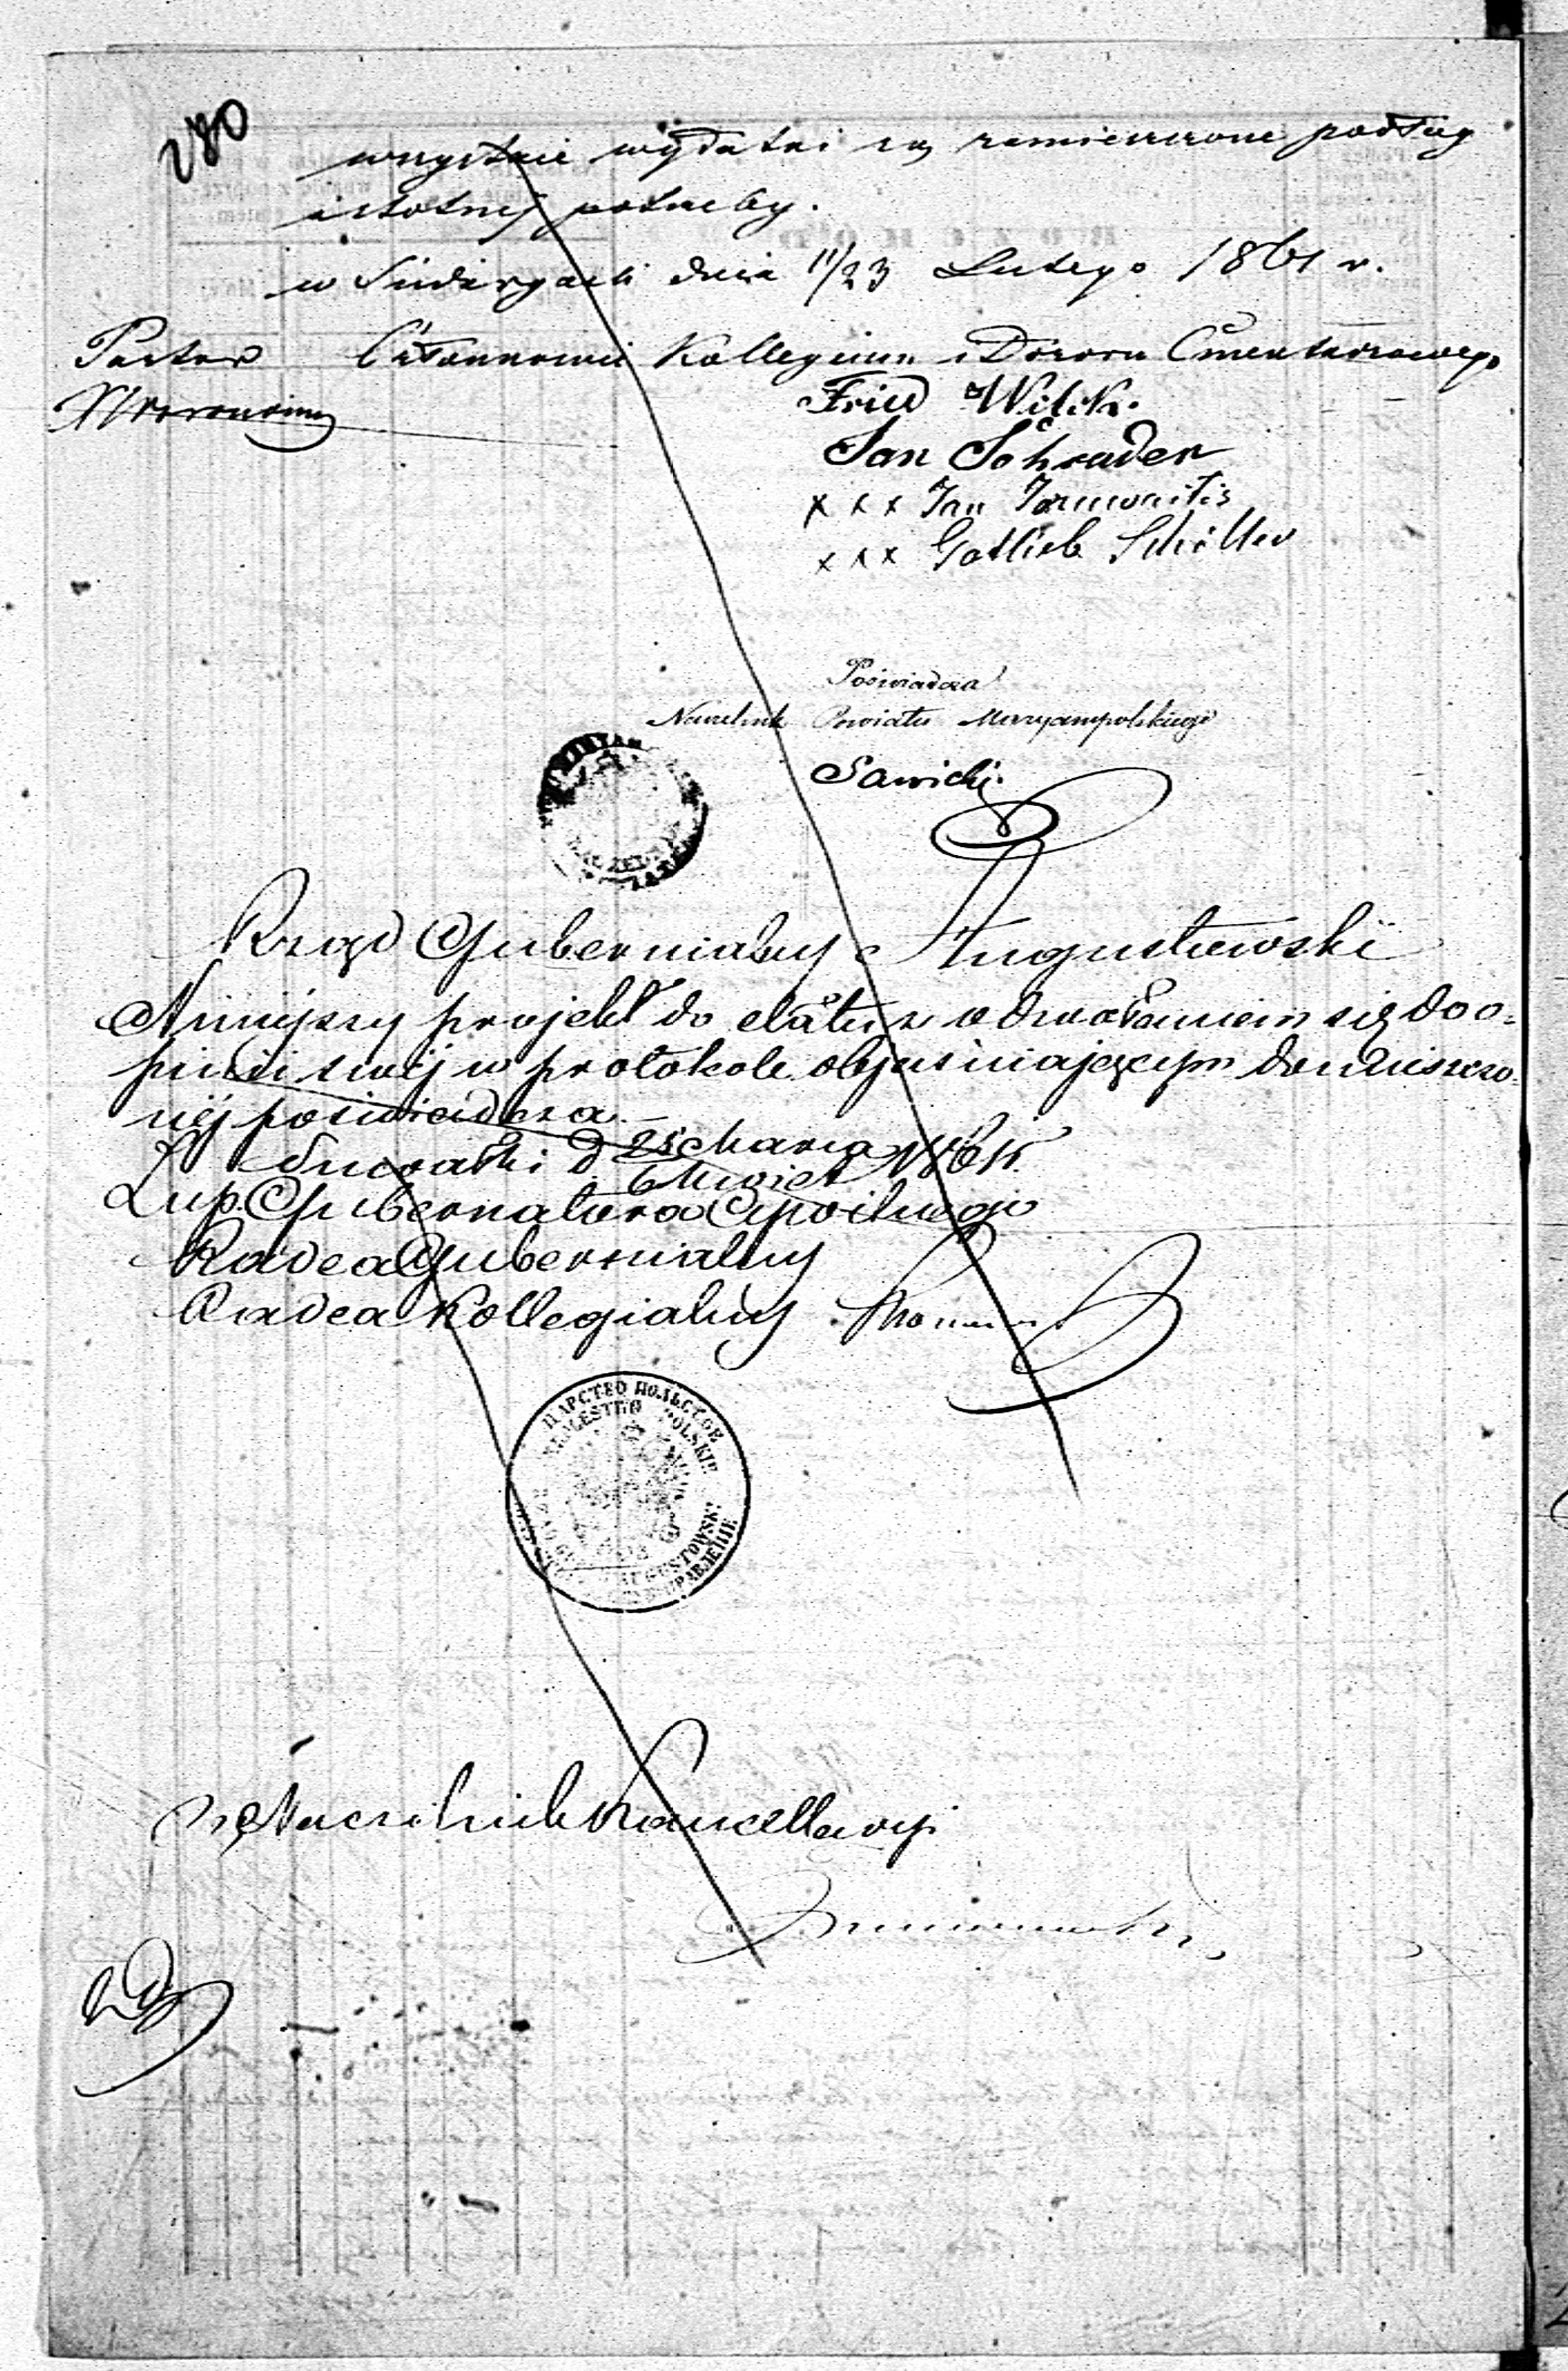 280
wszystkie wydatki są zamieszczone podług
istotnej potrzeby.
w Sudargach dnia 11/23 Lutego 1861 r.
Pastor Członkowie Kollegium i Dozoru Cmentarzowego
Fried Wilik.
Jan Schrader
x x x Jan
x x x Gotlieb Schiller
Poświadcza
Naczelnik Powiatu Maryampolskiego
Sawicki
Rząd Gubernialny Augustowski
Niniejszy projekt do etatu z odwołaniem się do o-
pinii swéj w protokole objaśniającym zamieszczo-
néj poświadcza.
Suwałki d. 25 Marca / 6 Kwiet 1861 r.
Z up. Gubernatora Cywilnego
Radca Gubernialny
Radca Kollegialny
ЦАРСТВО ПОЛЬСКОЕ
KRÓLESTWO POLSKIE
AUGUSTOWSKI
ПРАВЛЕНІЕ
Naczelnik Kancellaryi